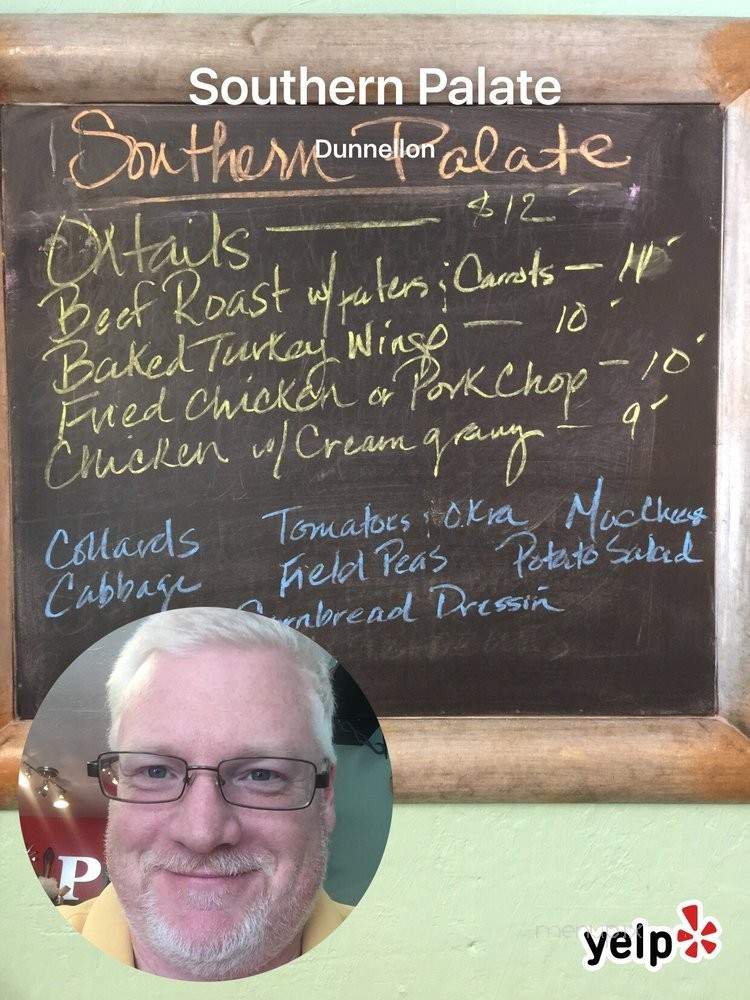 Southern Palate
Southern Palate
Dunnellon
Oxtails — $12
Beef Roast w/ taters & Carrots —
Baked Turkey Wings — 10
Fried chicken or Pork Chop — 10
Chicken w/ Cream gravy — 9
Collards Tomatoes & Okra MacCheese
Cabbage Field Peas Potato Salad
Cornbread Dressin
P
yelp